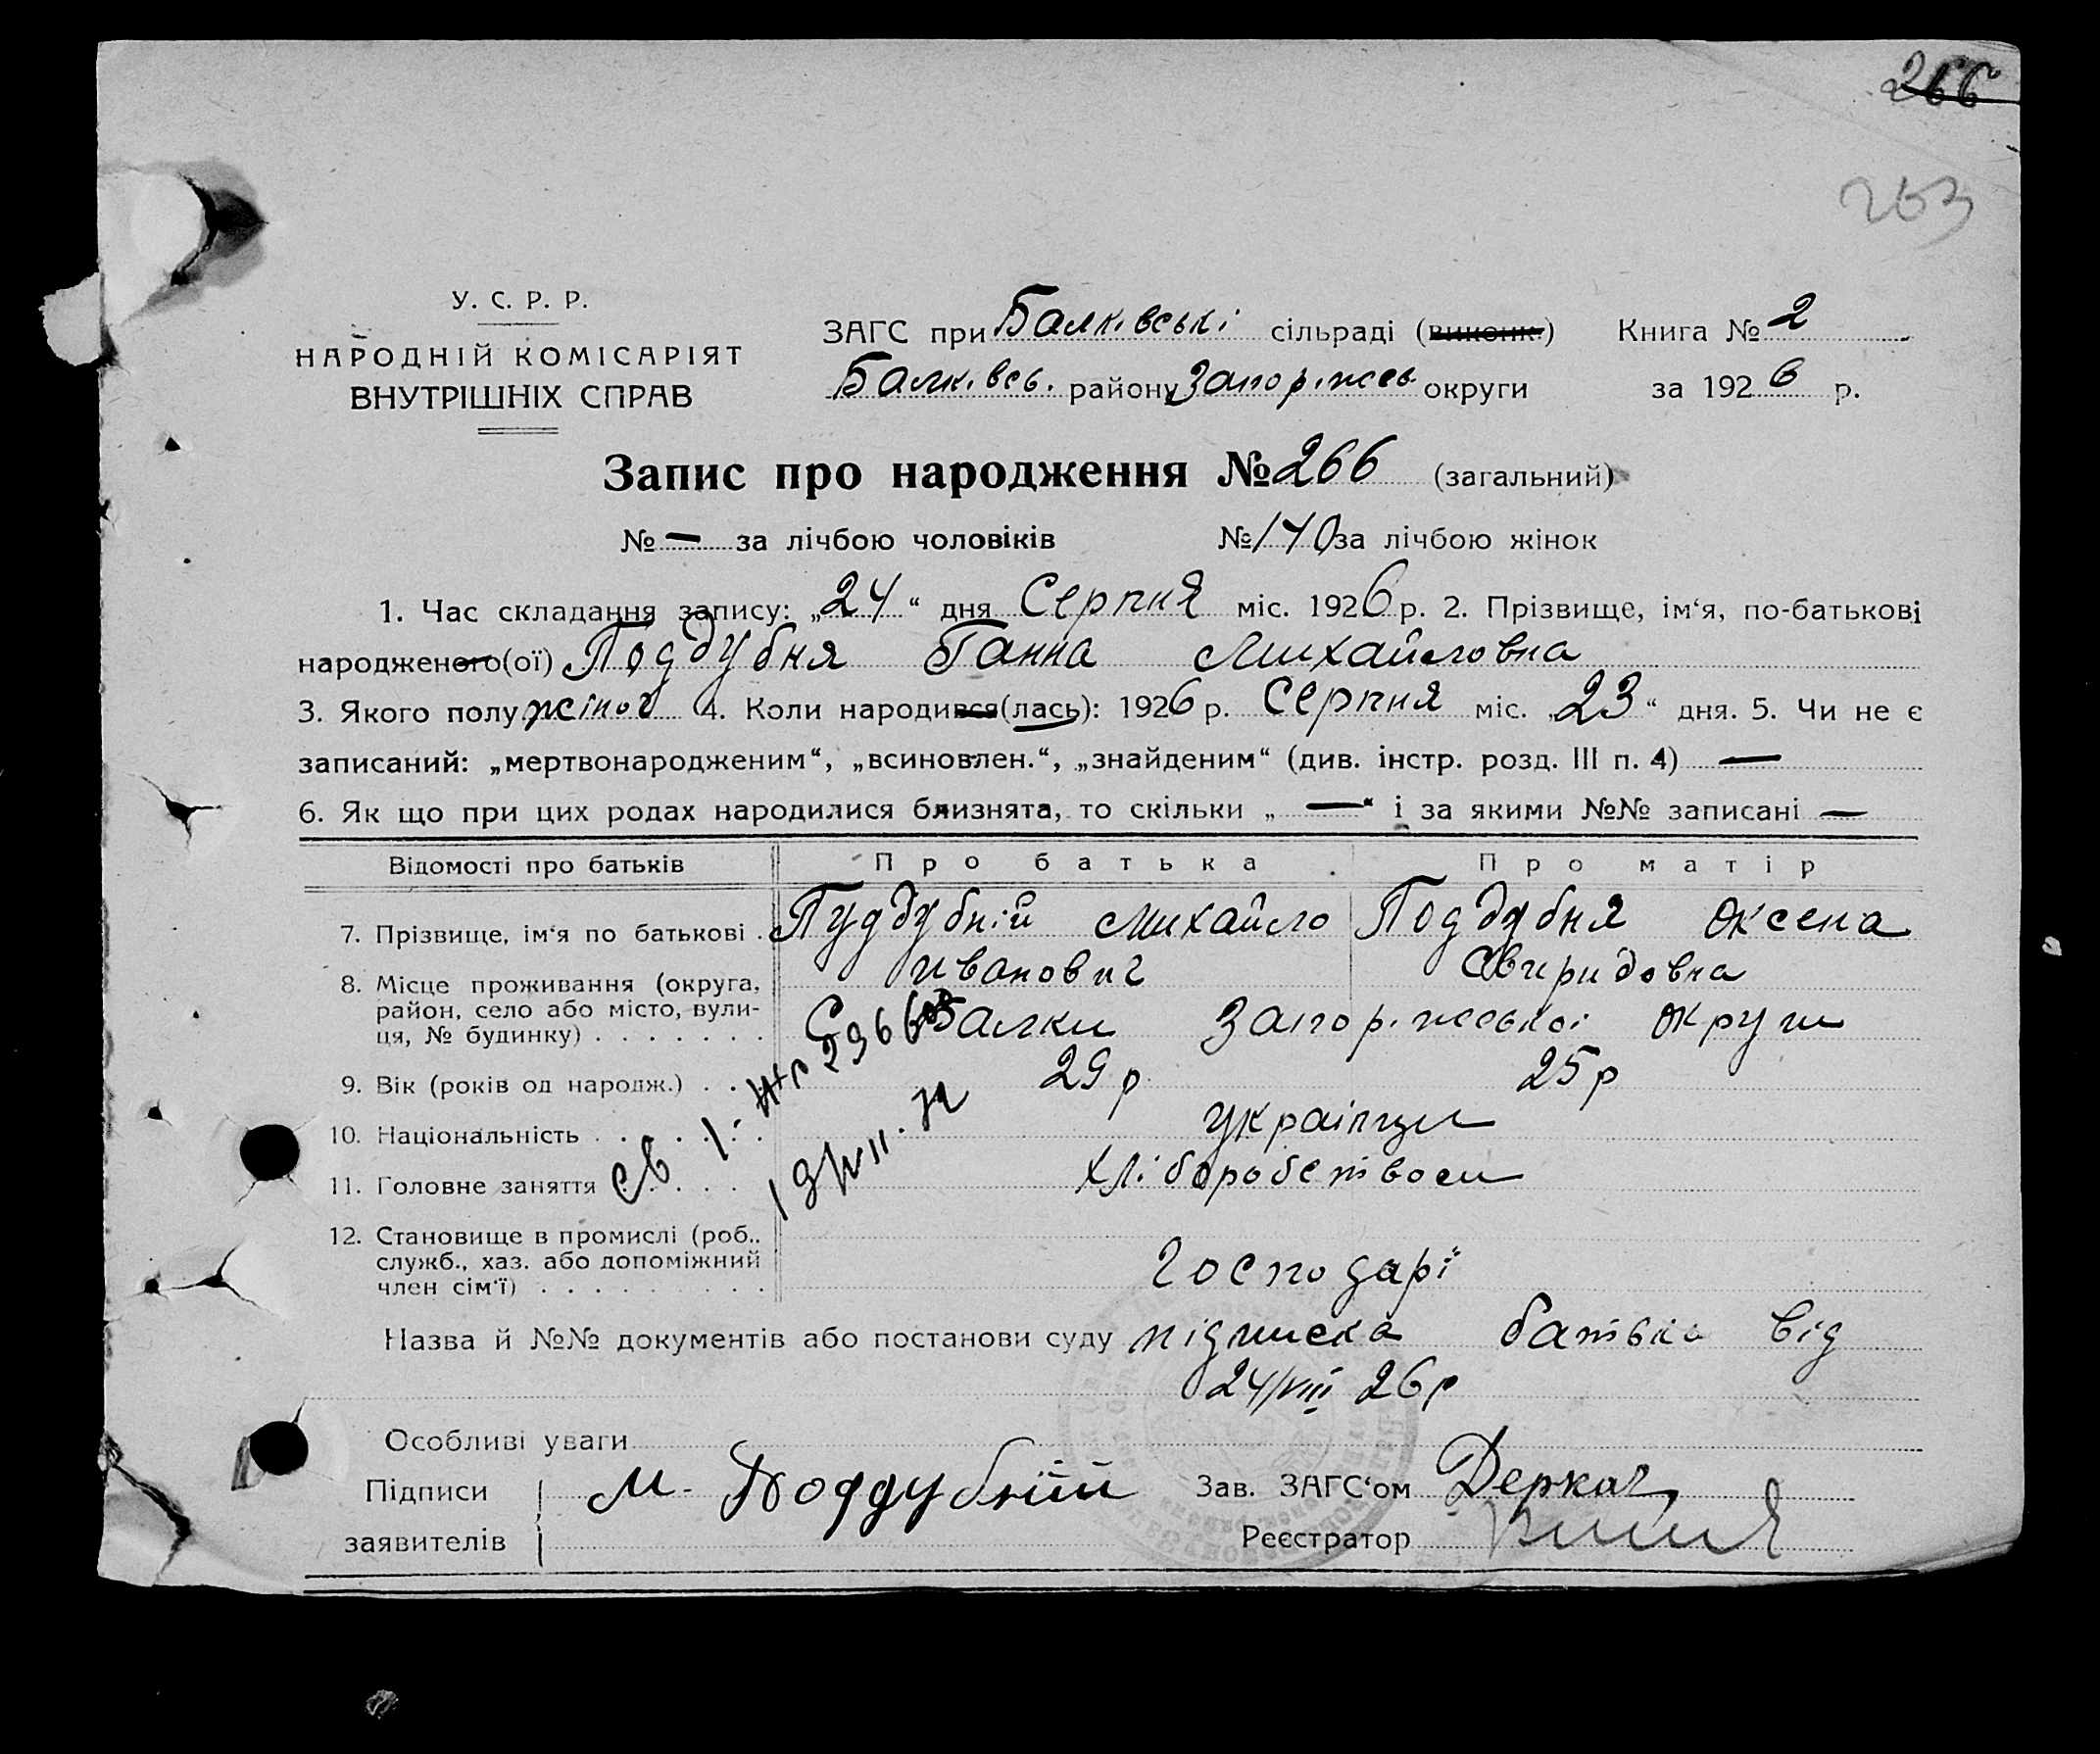 266
263
У. С. Р. Р.
НАРОДНІЙ КОМІСАРІЯТ
ВНУТРІШНІХ СПРАВ
ЗАГС при Балківські сільраді (виконк.) Книга № 2
Балківсь. району Запоріжсь округи за 1926 р.
Запис про народження № 266 (загальний)
№ — за лічбою чоловіків № 140 за лічбою жінок
1. Час складання запису: „24“ дня Серпня міс. 1926 р. 2. Прізвище, ім‘я, по-батькові
народженого(ої) Поддубня Ганна Михайловна
3. Якого полу жіноч 4. Коли народився(лась): 1926 р. Серпня міс. „23“ дня. 5. Чи не є
записаний: „мертвонародженим“, „всиновлен.“, „знайденим“ (див. інстр. розд. III п. 4) —
6. Як що при цих родах народилися близнята, то скільки „ —“ і за якими №№ записані —
Відомості про батьків Про батька Про матір
7. Прізвище, ім‘я по батькові . Пуддубній Михайло Поддубня Оксена
Иванович Свиридовна
8. Місце проживання (округа,
район, село або місто, вули-
ця, № будинку) . . . . . . . С Балки Запоріжської округи
9. Вік (років од народж.) . . 29 р 25 р
10. Національність . . . . . . . українци
11. Головне заняття . . . . . хліборобством
12. Становище в промислі (роб.,
служб., хаз. або допоміжний
член сім‘ї) . . . . . . . . . Господарі
Св. 1-
Назва й №№ документів або постанови суду підписка батька від
24/VIII 26 р
Особливі уваги
Підписи
заявителів М. Поддубний
Зав. ЗАГС‘ом Деркач
Реєстратор